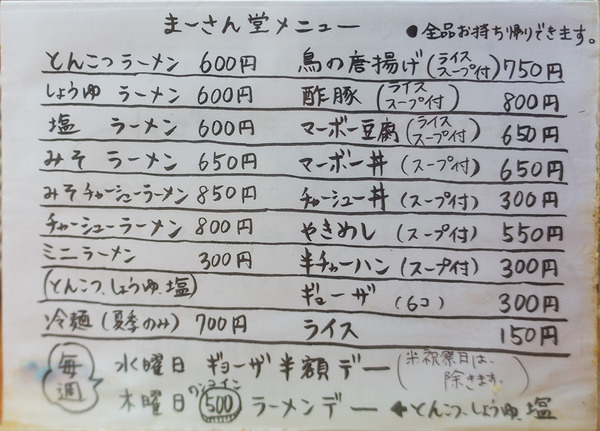 まーさん堂メニュー
●全品お持ち帰りできます。
とんこつラーメン 600円
しょうゆ ラーメン 600円
塩 ラーメン 600円
みそ ラーメン 650円
みそチャーシューラーメン 850円
チャーシューラーメン 800円
ミニラーメン 300円
(とんこつ、しょうゆ、塩)
冷麺(夏季のみ) 700円
鳥の唐揚げ(ライス スープ付) 750円
酢豚 (ライス スープ付) 800円
マーボー豆腐(ライス スープ付) 650円
マーボー丼 (スープ付) 650円
チャーシュー丼 (スープ付) 300円
やきめし (スープ付) 550円
半チャーハン (スープ付) 300円
ギョーザ (6コ) 300円
ライス 150円
毎週
水曜日 ギョーザ半額デー (※祝祭日は、除きます。)
木曜日 ワンコイン 500 ラーメンデー ←とんこつ、しょうゆ、塩